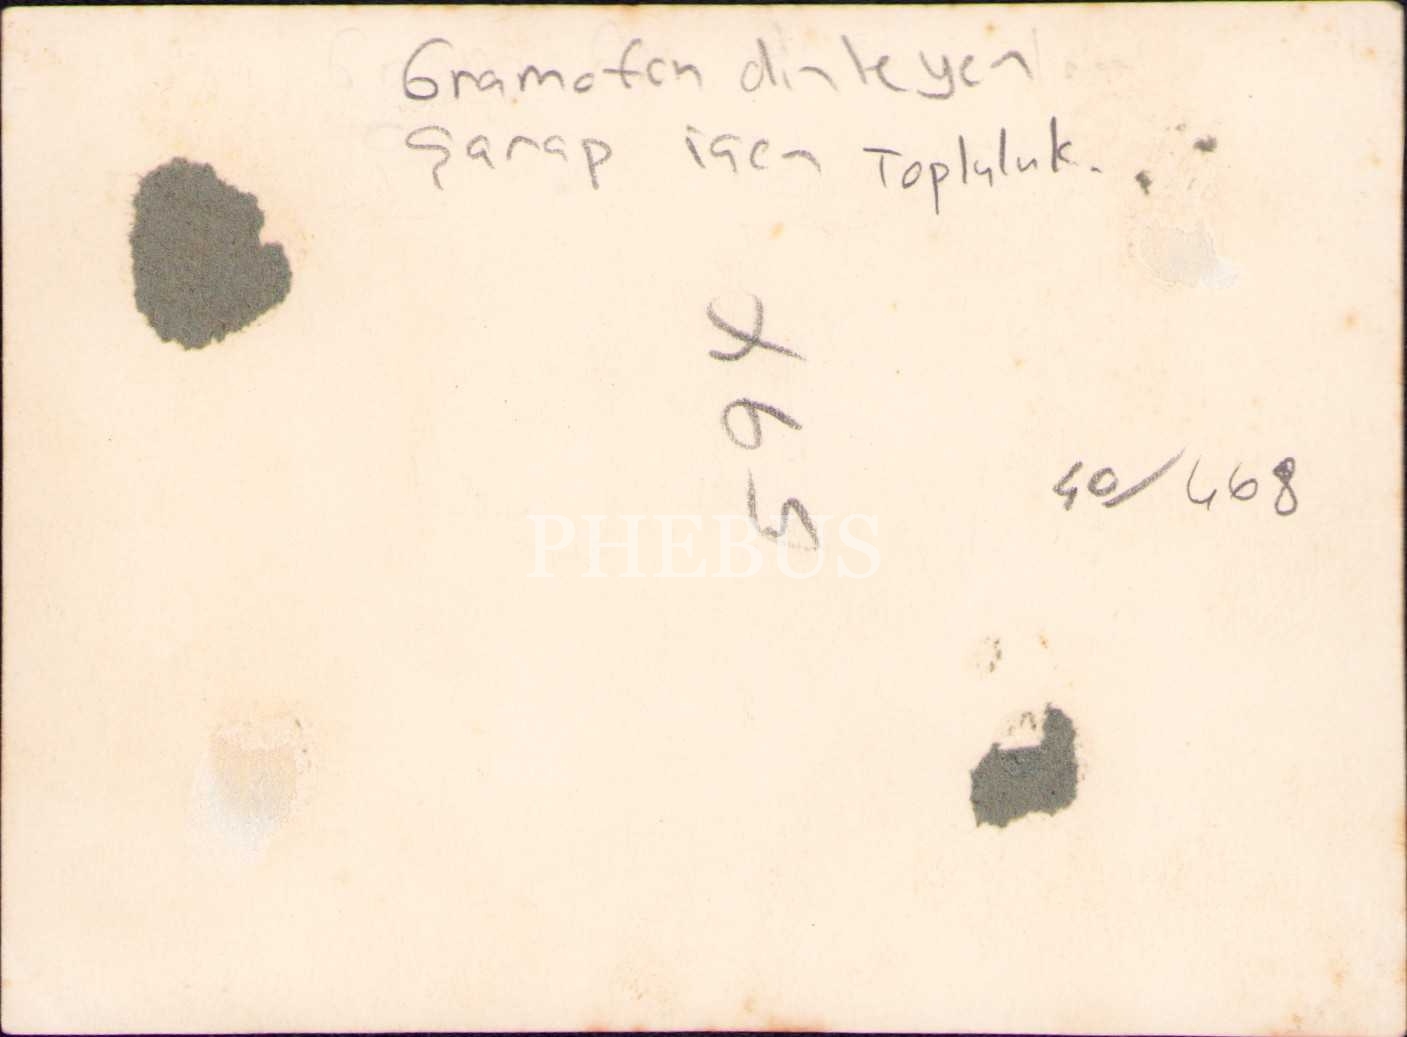 Gramofon dinleyen
Şarap içen Topluluk.
40/468
PHEBUS